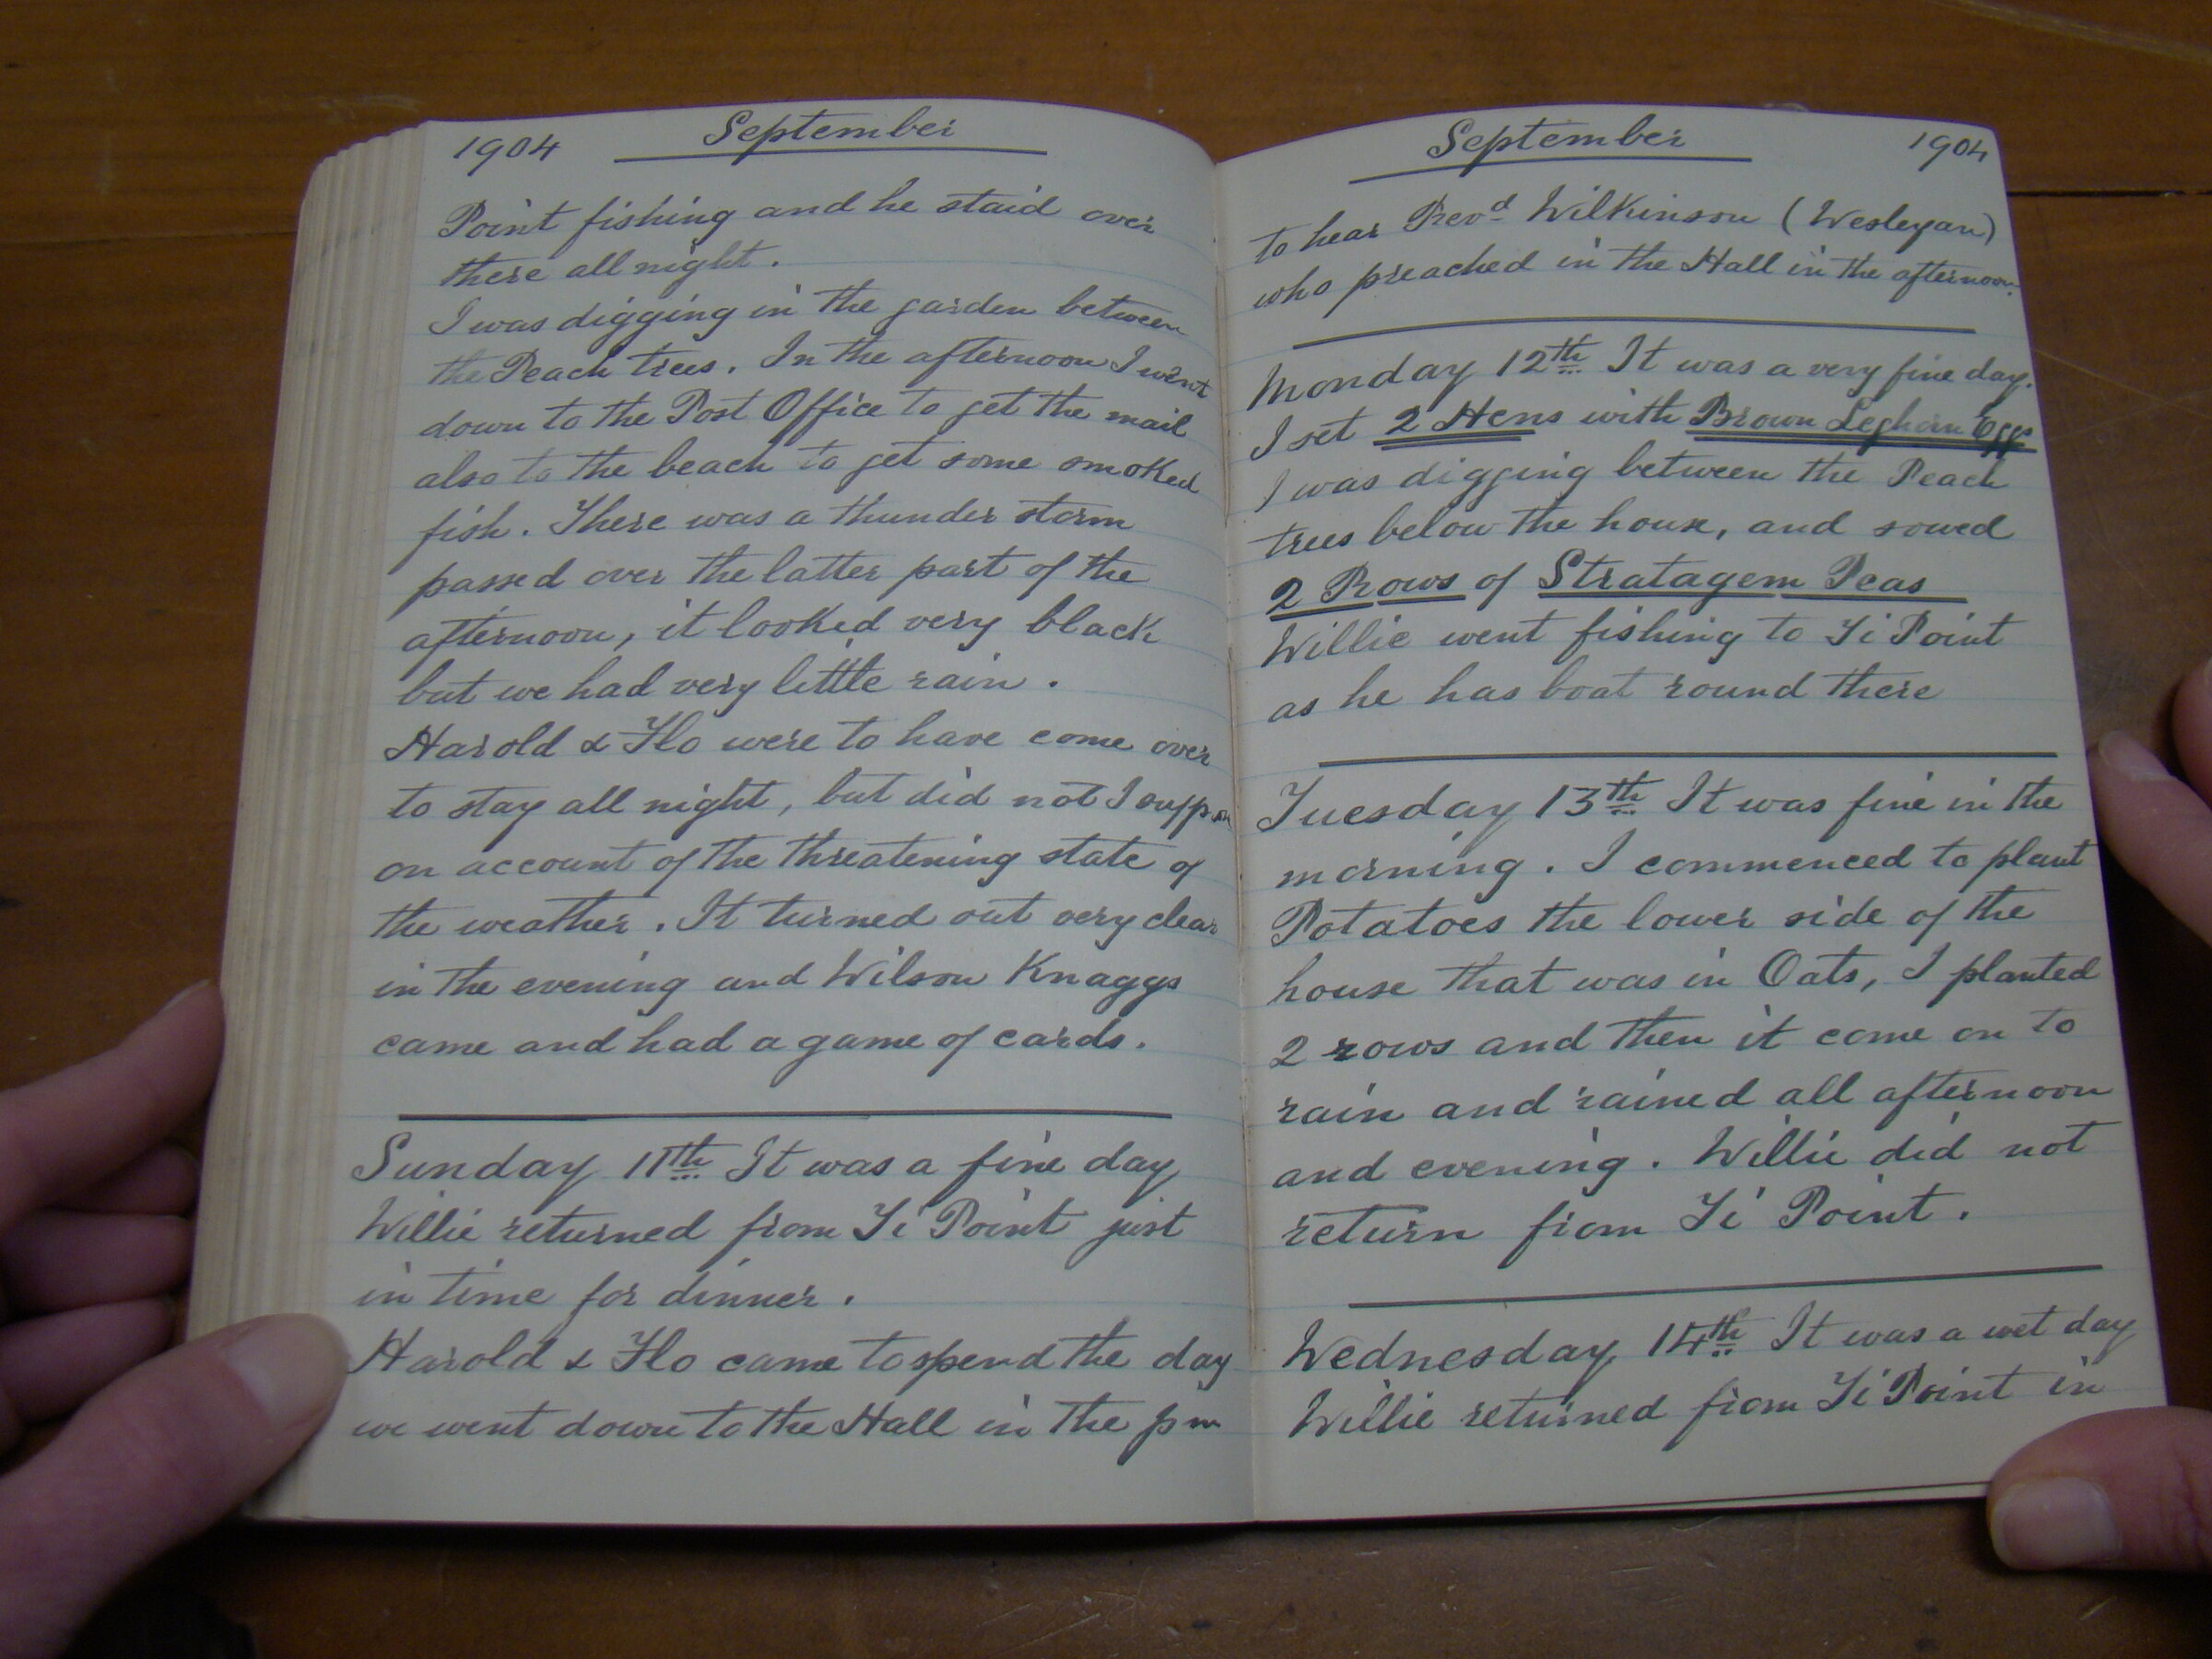 1904 September
Point fishing and he staid over
there all night.
I was digging in the garden between
the Peach trees. In the afternoon I went
down to the Post Office to get the mail
also to the beach to get some smoked
fish. There was a thunder storm
passed over the latter part of the
afternoon, it looked very black
but we had very little rain.
Harold & Flo were to have come over
to stay all night, but did not I suppose
on account of the threatening state of
the weather. It turned out very clear
in the evening and Wilson Knaggs
came and had a game of cards.
Sunday 11th It was a fine day
Willie returned from Ti Point just
in time for dinner.
Harold & Flo came to spend the day
we went down to the Hall in the pm
September 1904
to hear Revd Wilkinson (Wesleyan)
who preached in the Hall in the afternoon.
Monday 12th It was a very fine day.
I set 2 Hens with Brown Leghorn Eggs
I was digging between the Peach
trees below the house, and sowed
2 Rows of Stratagem Peas
Willie went fishing to Ti Point
as he has boat round there
Tuesday 13th It was fine in the
morning. I commenced to plant
Potatoes the lower side of the
house that was in Oats, I planted
2 rows and then it come on to
rain and rained all afternoon
and evening. Willie did not
return from Ti Point.
Wednesday 14th It was a wet day
Willie returned from Ti Point in